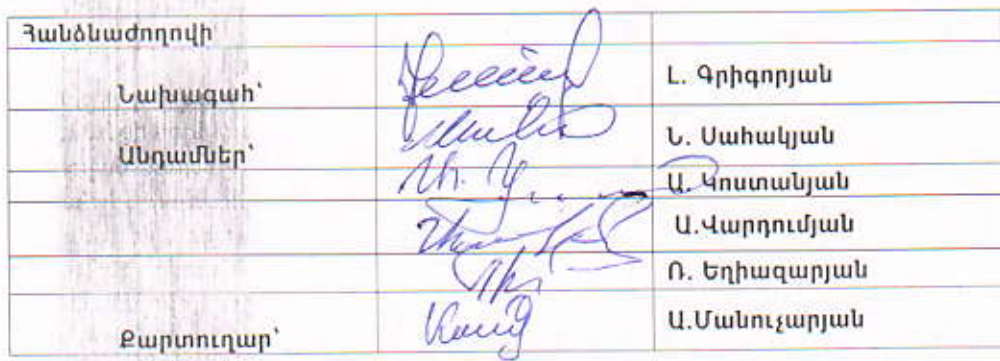 Հանձնաժողովի
Նախագահ՝ Լ. Գրիգորյան
Անդամներ՝ Ն. Սահակյան
Ա. Կոստանյան
Ա.Վարդումյան
Ռ. Եղիազարյան
Քարտուղար՝ Ա.Մանուչարյան